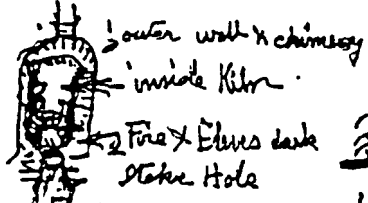 outer wall & chimney
inside Kiln
Fire
Stoke Hole